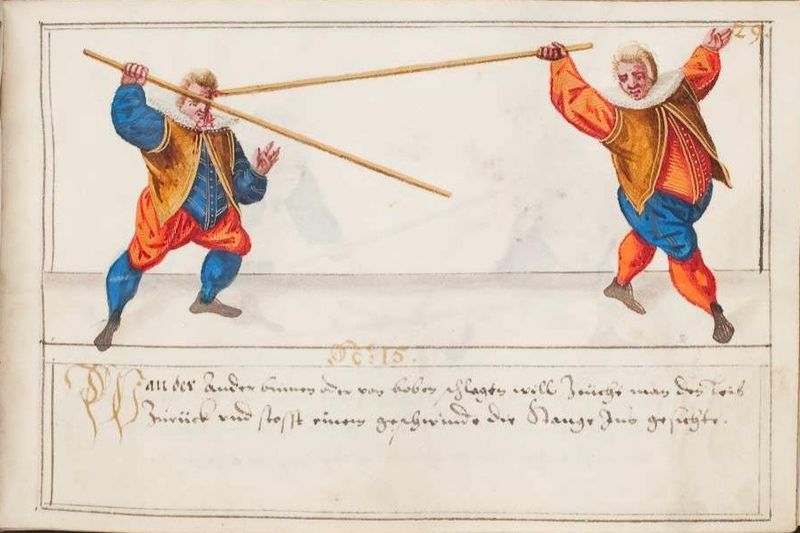 29.
No: 15.
Wan der Ander binnen oder von boben schlagen will Zeucht man den Leib
Zurück vnd stosst einem geschwinde die Stange Ins gesichte.